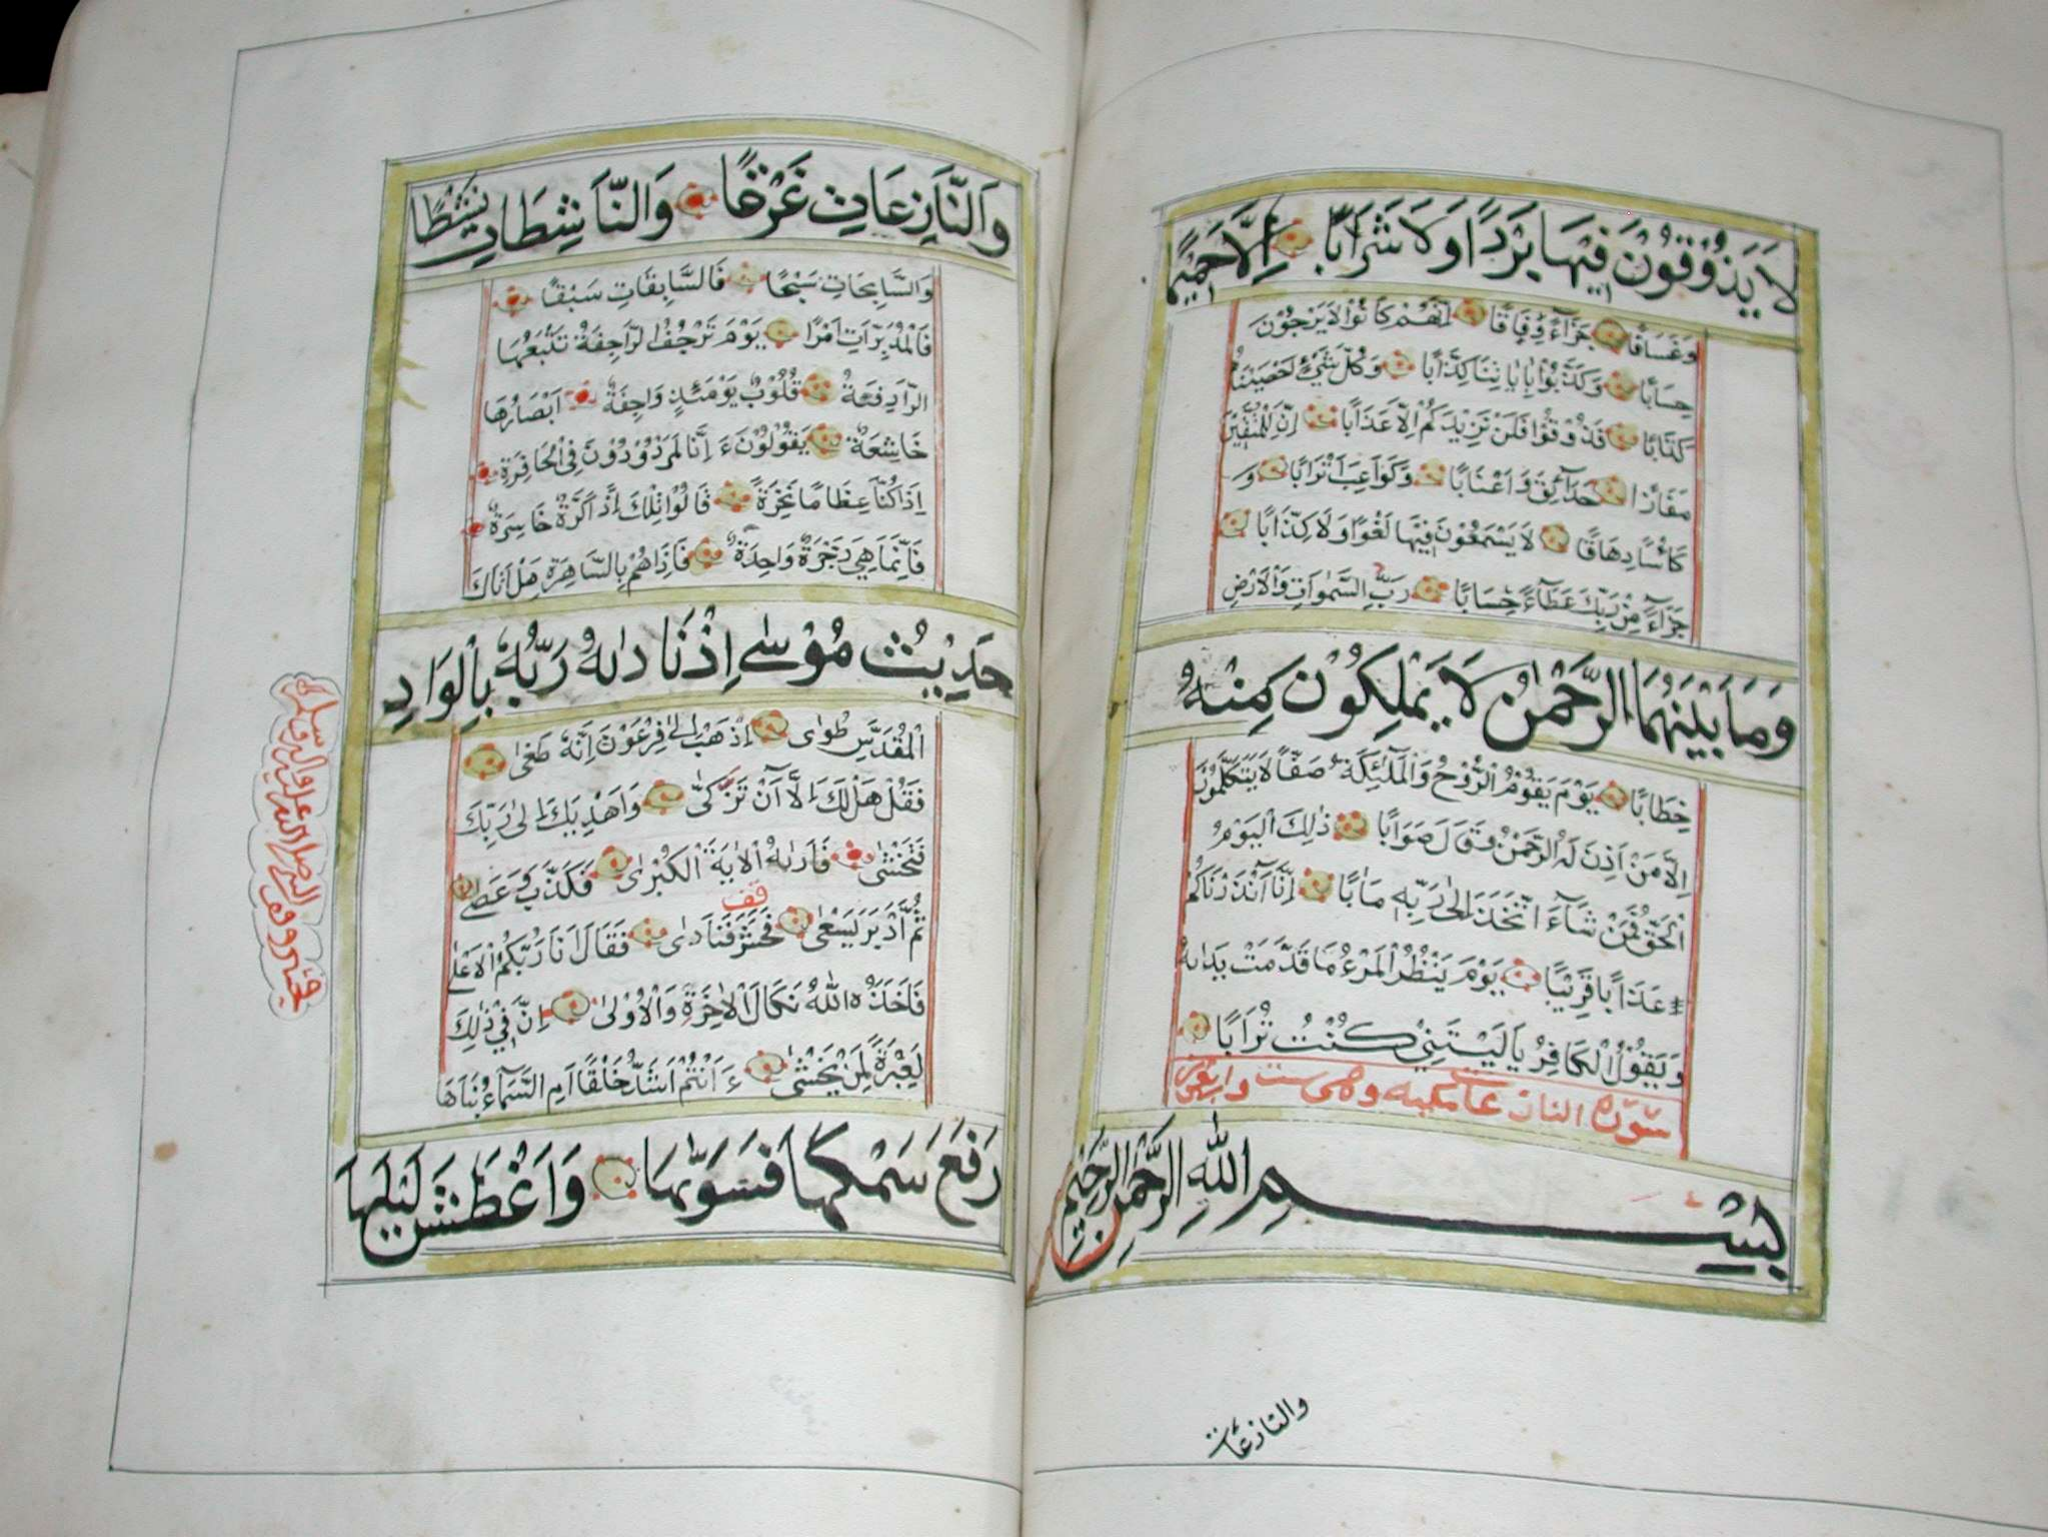 لَا يَذُوْقُوْنَ فِيْهَا بَرْدًا وَلَا شَرَابًا اِلَّا حَمِيْمًا
وَغَسَاقًا جَزَآءً وِفَاقًا اِنَّهُمْ كَانُوْا لَا يَرْجُوْنَ
حِسَابًا وَكَذَّبُوْا بِاٰيَاتِنَا كِذَّابًا وَكُلَّ شَيْءٍ اَحْصَيْنَاهُ
كِتَابًا فَذُوْقُوْا فَلَنْ نَزِيْدَكُمْ اِلَّا عَذَابًا اِنَّ لِلْمُتَّقِيْنَ
مَفَازًا حَدَآئِقَ وَاَعْنَابًا وَكَوَاعِبَ اَتْرَابًا وَ
كَاْسًا دِهَاقًا لَا يَسْمَعُوْنَ فِيْهَا لَغْوًا وَلَا كِذَّابًا
جَزَآءً مِنْ رَبِّكَ عَطَآءً حِسَابًا رَبِّ السَّمٰوَاتِ وَالْاَرْضِ
وَمَا بَيْنَهُمَا الرَّحْمٰنُ لَا يَمْلِكُوْنَ مِنْهُ
خِطَابًا يَوْمَ يَقُوْمُ الرُّوْحُ وَالْمَلٰٓئِكَةُ صَفًّا لَا يَتَكَلَّمُوْنَ
اِلَّا مَنْ اَذِنَ لَهُ الرَّحْمٰنُ وَقَالَ صَوَابًا ذٰلِكَ الْيَوْمُ
الْحَقُّ فَمَنْ شَآءَ اتَّخَذَ اِلٰى رَبِّهٖ مَاٰبًا اِنَّآ اَنْذَرْنَاكُمْ
عَذَابًا قَرِيْبًا يَوْمَ يَنْظُرُ الْمَرْءُ مَا قَدَّمَتْ يَدَاهُ
وَيَقُوْلُ الْكَافِرُ يَا لَيْتَنِيْ كُنْتُ تُرَابًا
سورة النازعات مكيه وهي ست واربعون
بِسْمِ اللّٰهِ الرَّحْمٰنِ الرَّحِيْمِ
والنازعات
وَالنَّازِعَاتِ غَرْقًا وَالنَّاشِطَاتِ نَشْطًا
وَالسَّابِحَاتِ سَبْحًا فَالسَّابِقَاتِ سَبْقًا
فَالْمُدَبِّرَاتِ اَمْرًا يَوْمَ تَرْجُفُ الرَّاجِفَةُ تَتْبَعُهَا
الرَّادِفَةُ قُلُوْبٌ يَوْمَئِذٍ وَاجِفَةٌ اَبْصَارُهَا
خَاشِعَةٌ يَقُوْلُوْنَ ءَاِنَّا لَمَرْدُوْدُوْنَ فِي الْحَافِرَةِ
اِذَا كُنَّا عِظَامًا نَخِرَةً قَالُوْا تِلْكَ اِذًا كَرَّةٌ خَاسِرَةٌ
فَاِنَّمَا هِيَ زَجْرَةٌ وَاحِدَةٌ فَاِذَا هُمْ بِالسَّاهِرَةِ هَلْ اَتَاكَ
حَدِيْثُ مُوْسٰى اِذْ نَادٰىهُ رَبُّهُ بِالْوَادِ
الْمُقَدَّسِ طُوٰى اِذْهَبْ اِلٰى فِرْعَوْنَ اِنَّهُ طَغٰى
فَقُلْ هَلْ لَكَ اِلٰٓى اَنْ تَزَكّٰى وَاَهْدِيَكَ اِلٰى رَبِّكَ
فَتَخْشٰى فَاَرٰىهُ الْاٰيَةَ الْكُبْرٰى فَكَذَّبَ وَعَصٰى
قف
ثُمَّ اَدْبَرَ يَسْعٰى فَحَشَرَ فَنَادٰى فَقَالَ اَنَا رَبُّكُمُ الْاَعْلٰى
فَاَخَذَهُ اللّٰهُ نَكَالَ الْاٰخِرَةِ وَالْاُوْلٰى اِنَّ فِيْ ذٰلِكَ
لَعِبْرَةً لِمَنْ يَخْشٰى ءَاَنْتُمْ اَشَدُّ خَلْقًا اَمِ السَّمَآءُ بَنَاهَا
رَفَعَ سَمْكَهَا فَسَوّٰىهَا وَاَغْطَشَ لَيْلَهَا